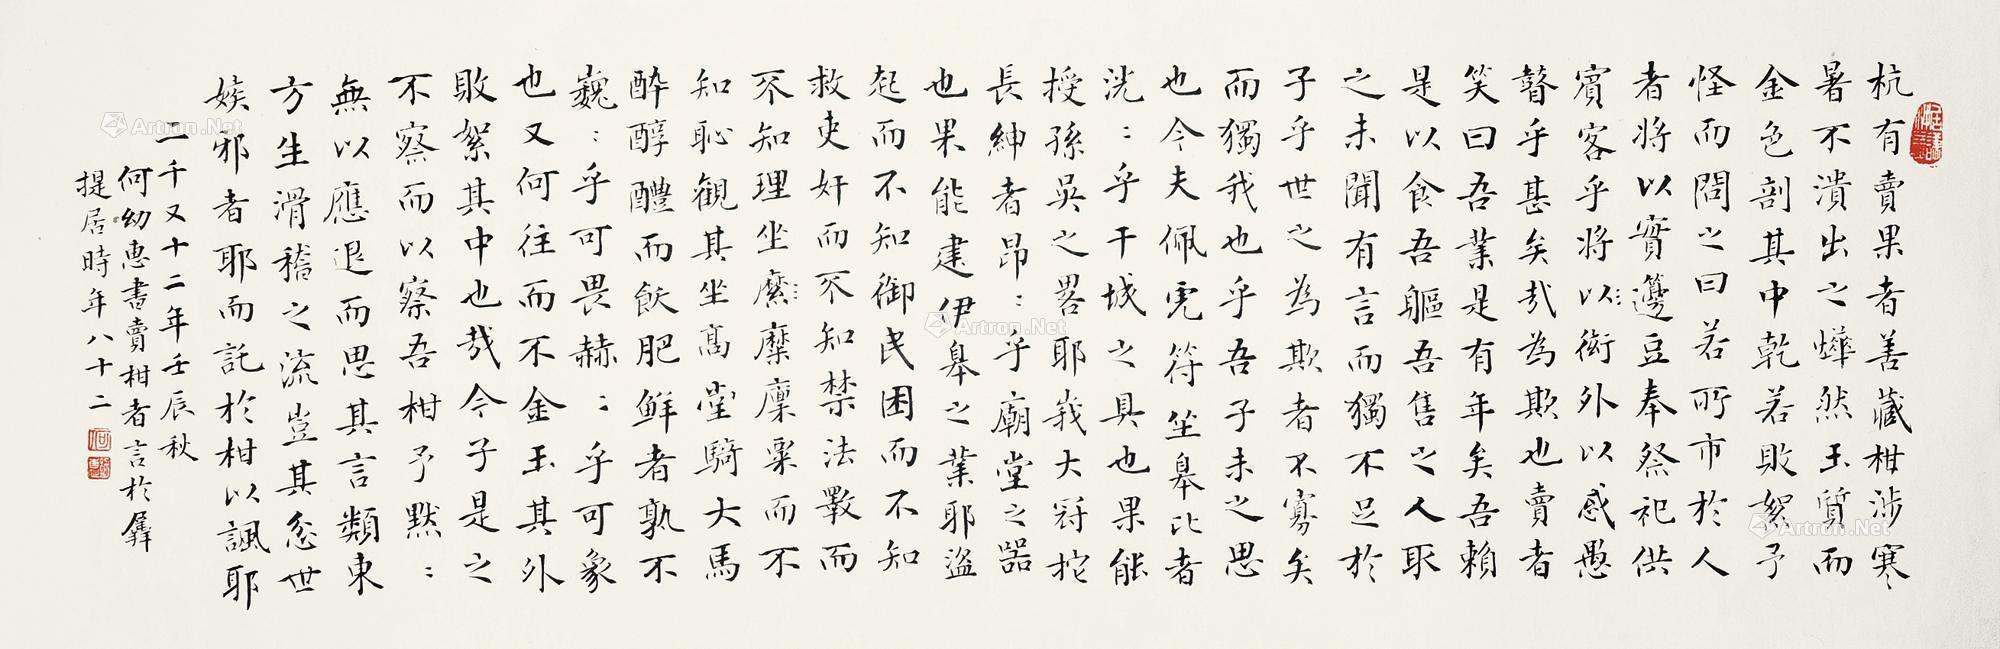 杭有賣果者善藏柑涉寒
暑不潰出之燁然玉質而
金色剖其中乾若敗絮予
怪而問之曰若所市於人
者將以實籩豆奉祭祀供
賓客乎將以衒外以惑愚
瞽乎甚矣哉為欺也賣者
笑曰吾業是有年矣吾賴
是以食吾軀吾售之人取
之未聞有言而獨不足於
子乎世之為欺者不寡矣
而獨我也乎吾子未之思
也今夫佩虎符坐皋比者
洸:乎干城之具也果能
授孫吳之畧耶峩大冠拕
長紳者昂:乎廟堂之器
也果能建伊皋之業耶盜
起而不知御民困而不知
救吏奸而不知禁法斁而
不知理坐縻糜廩粟而不
知恥觀其坐高堂騎大馬
醉醇醴而飫肥鮮者孰不
巍:乎可畏赫:乎可象
也又何往而不金玉其外
敗絮其中也哉今子是之
不察而以察吾柑予默:
無以應退而思其言類東
方生滑稽之流豈其忿世
嫉邪者耶而託於柑以諷耶
二千又十二年壬辰秋
何幼惠書賣柑者言於羼
提居時年八十二
Artron.Net
Artron.Net
Artron.Net
Artron.Net